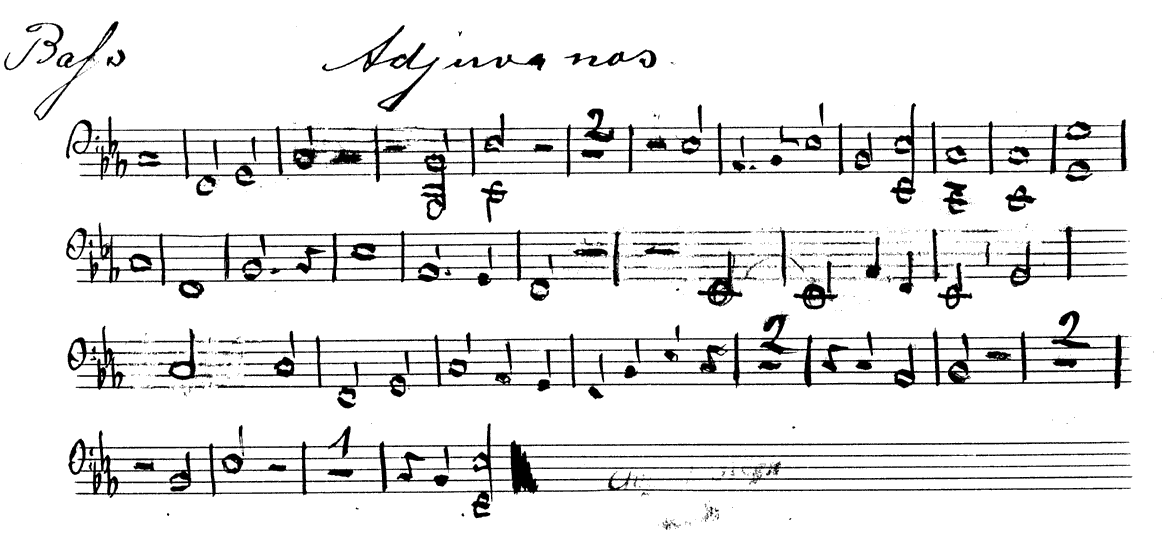 Basso Adjuva nos.
2
2 2
1